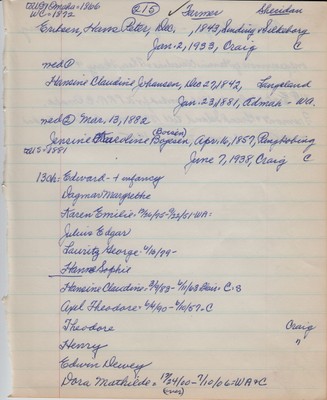 to U.S.? Omaha = 1866 215 ✓ Farmer Sheridan
W.C. = 1872
Eriksen, Hans Peter, Dec. , 1843, Sunding v. Silkeborg
Jan. 2, 1933, Craig C
med ①
Hansine Claudine Johansen, Dec 27, 1842, Langeland
Jan. 23, 1881, Admah - WA.
med ② Mar. 13, 1882
(Boisen)
Jensine Karoline Boysen, Apr. 16, 1857, Ringkobing
to U.S = 1881
June 7, 1938, Craig C
13 ch: Edward - + infancy
Dagmar Margrethe
Karen Emilie = 7/26/95 - 7/22/51 WA =
Julius Edgar
Lauritz George 4/18/99 -
Hans Sophie
Hansine Claudine = 3/4/83 - 4/1/63 Blair = C.S
Axel Theodore = 4/4/90 - 4/10/57 = C
Theodore Craig
Henry "
Edwin Dewey
Dora Mathilde = 12/24/00 - 7/10/06 = WA & C
(over)